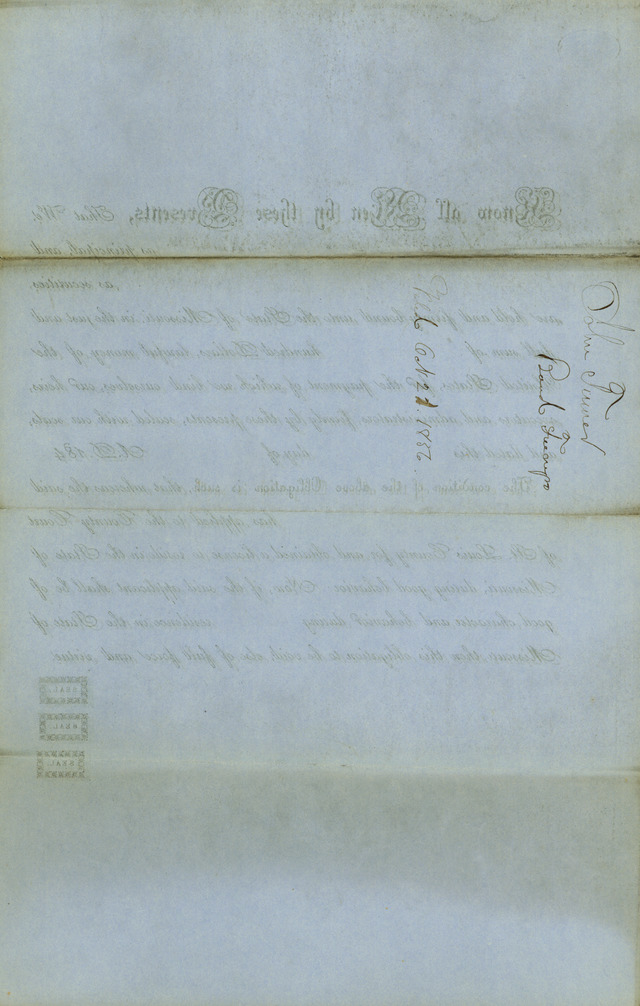 John Turner
Bond
Oct 27. 1832.
Know all Men by these Presents, That We,
as principal, and
as securities,
are held and firmly bound unto the State of Missouri in the just and
full sum of hundred Dollars, lawful money of the
United States, the payment of which we bind ourselves, our heirs,
executors and administrators firmly by these presents, sealed with our seals,
and dated this day of A.D. 184
The condition of the above Obligation is such, that whereas the said
has applied to the County Court
of St. Louis County for and obtained a license to reside in the State of
Missouri, during good behavior. Now, if the said applicant shall be of
good character and behavior during residence in the State of
Missouri then this obligation to be void, else of full force and virtue.
SEAL.
SEAL.
SEAL.